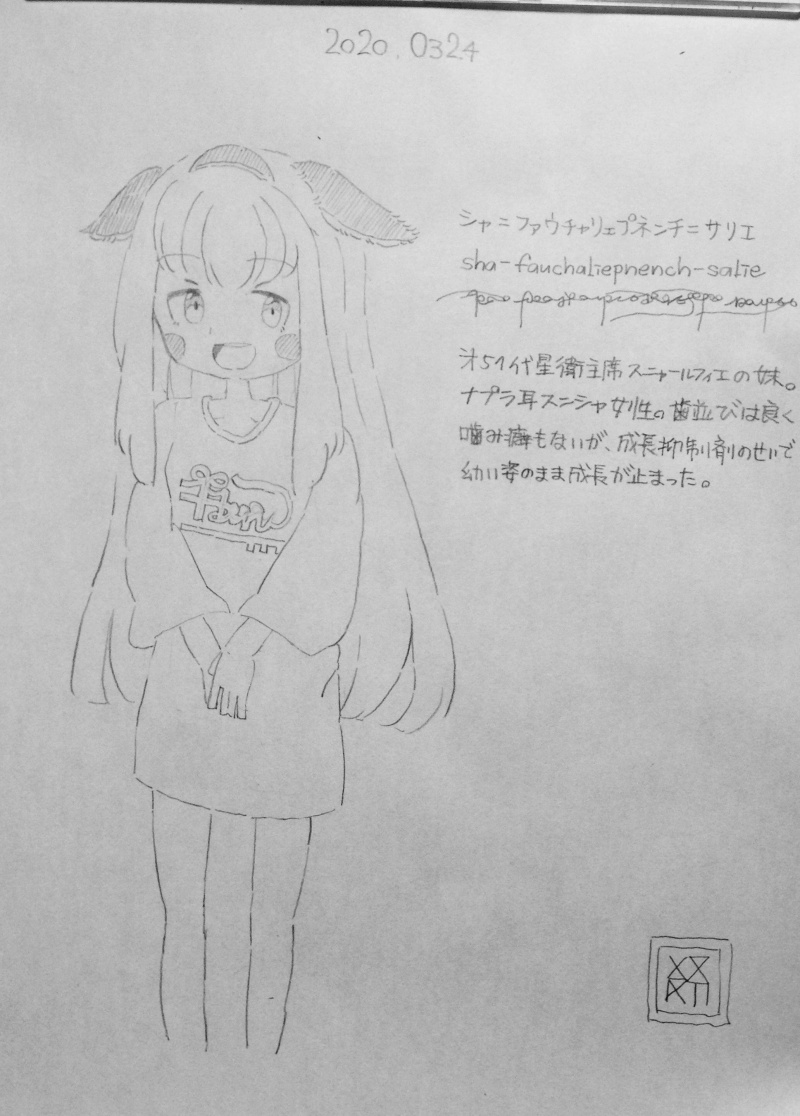 2020.0324
シャ=ファウチャリェプネンチ=サリエ
sha-fauchaliepnench-salie
才51代星衛主席スニャールフィエの妹。
ナプラ耳スンシャ女性の歯並びは良く
噛み癖もないが、成長抑制剤のせいで
幼い姿のまま成長が止まった。